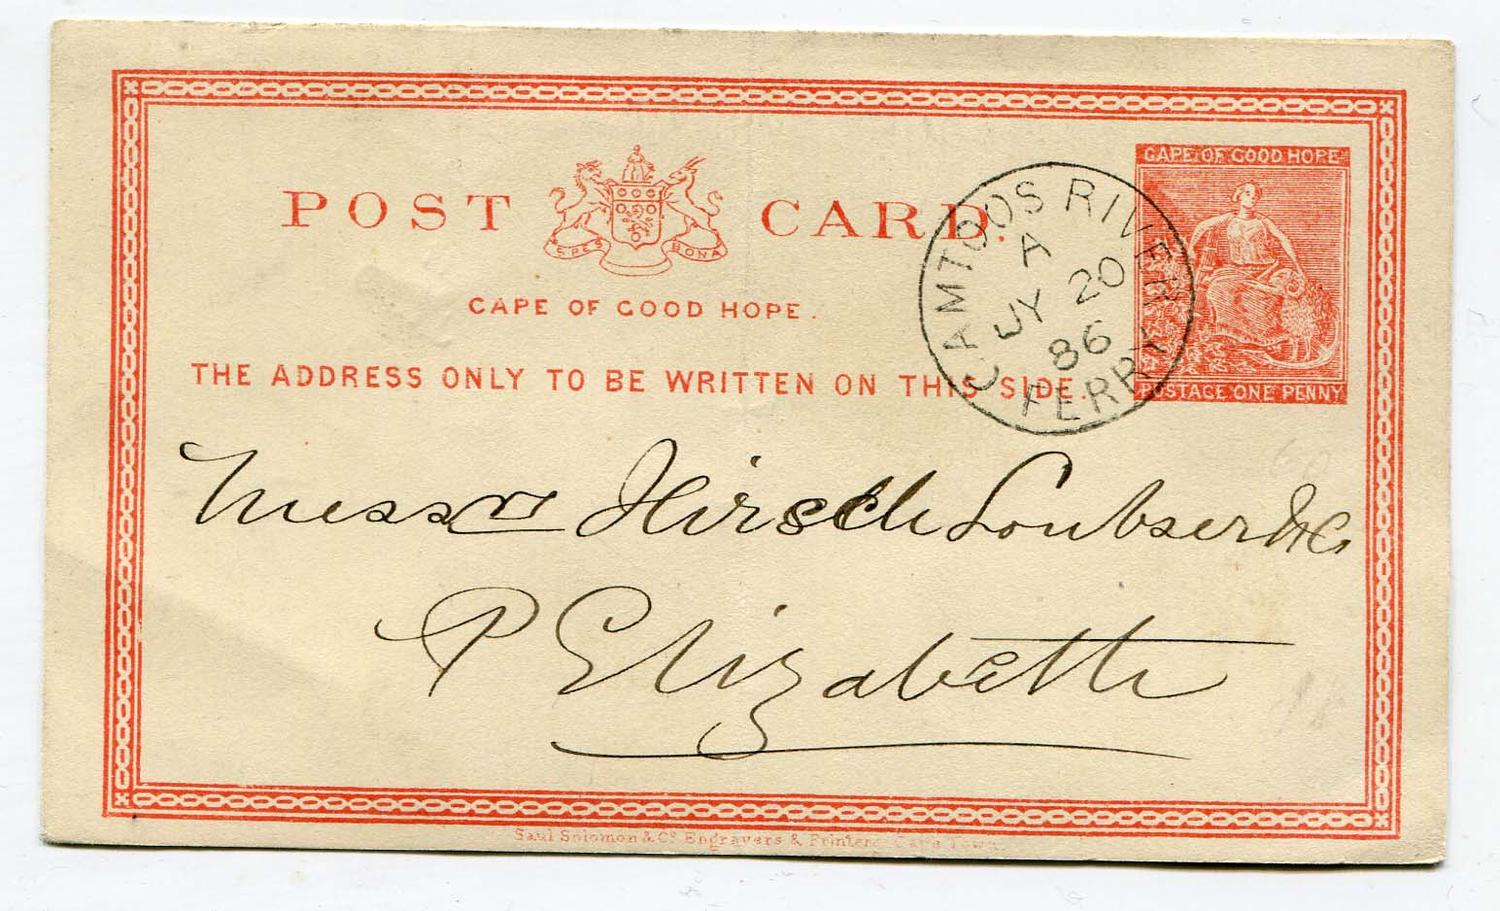 POST CARD.
SPES BONA
CAPE OF GOOD HOPE.
THE ADDRESS ONLY TO BE WRITTEN ON THIS SIDE.
CAPE OF GOOD HOPE
POSTAGE ONE PENNY
CAMTOOS RIVER FERRY
A
JY 20
86
Messrs Hirsch Loubser & Co
P Elizabeth
Saul Solomon & Co. Engravers & Printers Cape Town.